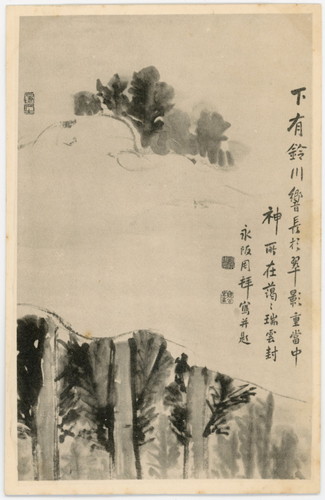 下有鈴川響長於翠影重當中
神所在藹〻瑞雲封
永阪周拜寫并題